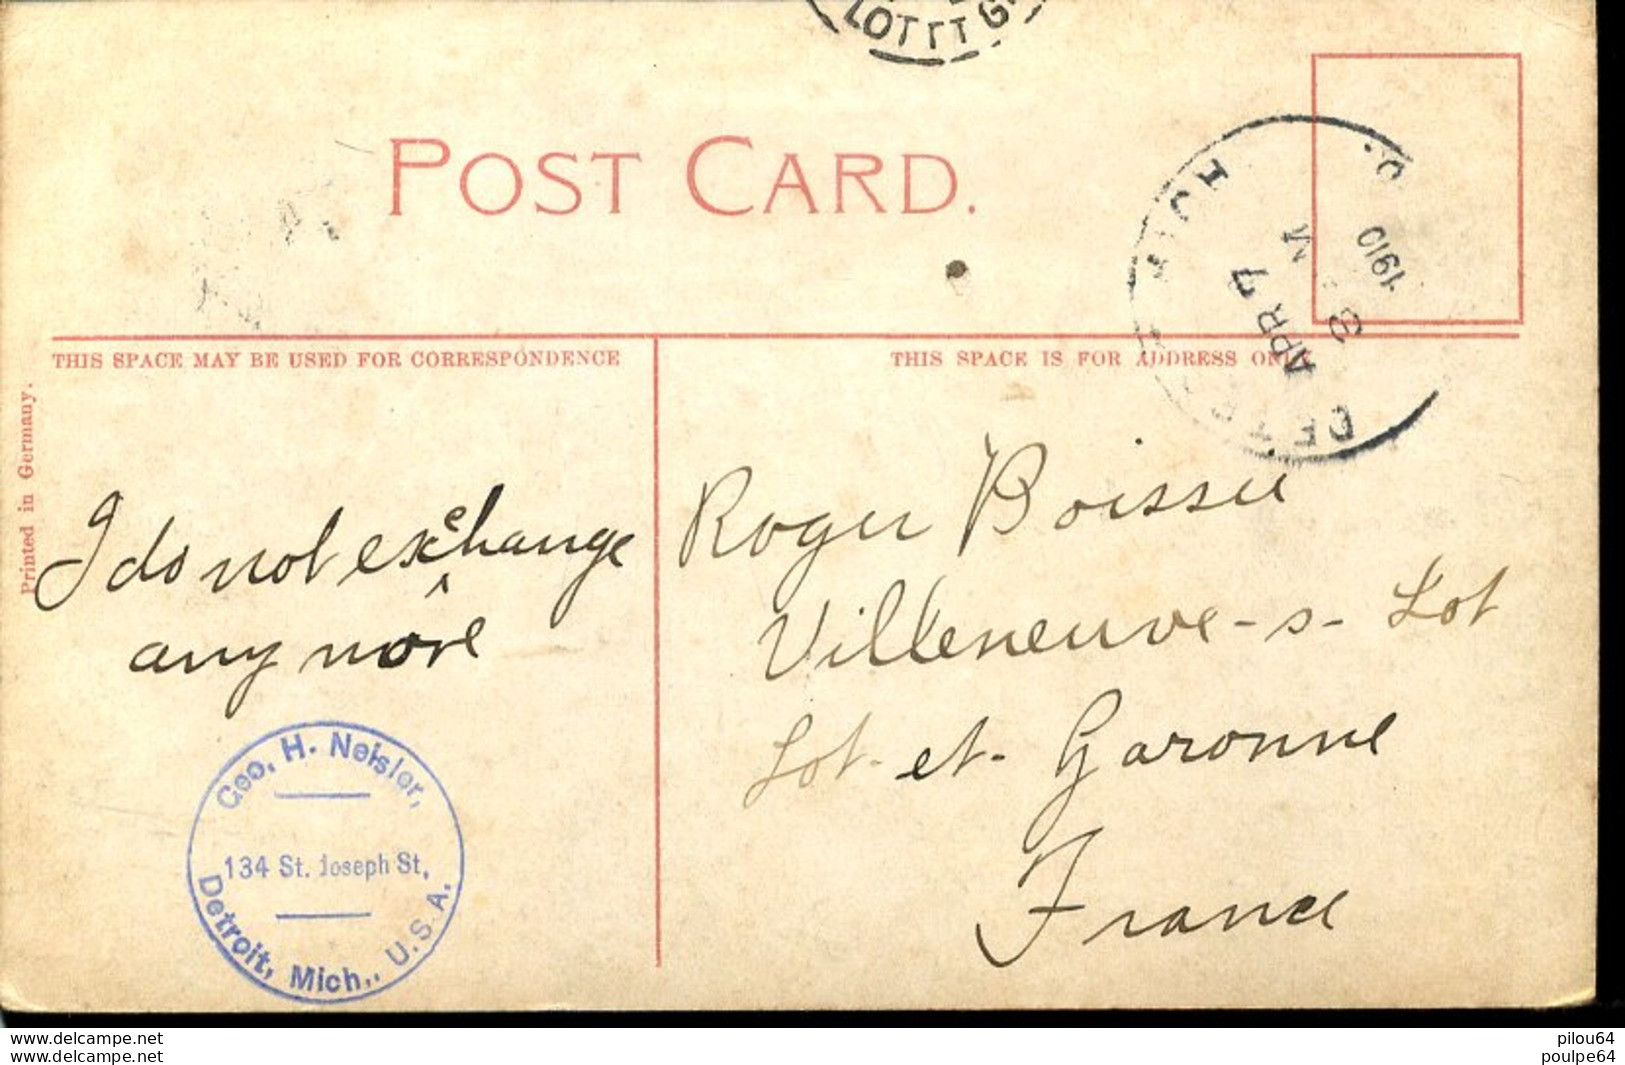 LOT ET G
POST CARD.
DETRO MICH.
APR 7
M
1910
THIS SPACE MAY BE USED FOR CORRESPONDENCE
THIS SPACE IS FOR ADDRESS ONLY
Printed in Germany.
I do not exchange
any more
Roger Boissie
Villeneuve-s-Lot
Lot-et-Garonne
France
Geo. H. Neisler,
134 St. Joseph St.
Detroit, Mich., U.S.A.
www.delcampe.net
www.delcampe.net
pilou64
poulpe64